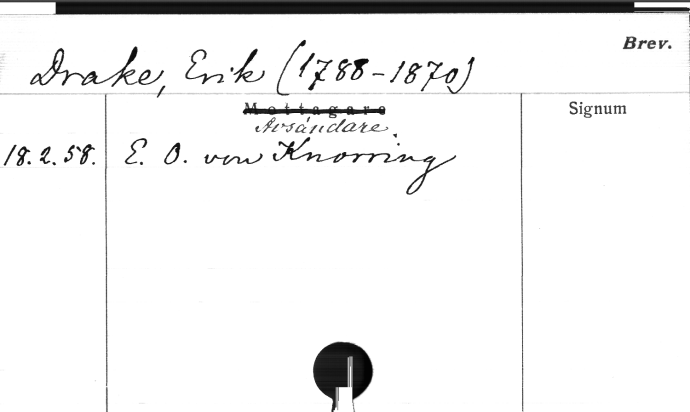 Brev.
Drake, Erik (1788-1870)
Mottagare
Avsändare.
Signum
18.2.58. E. O. von Knorring